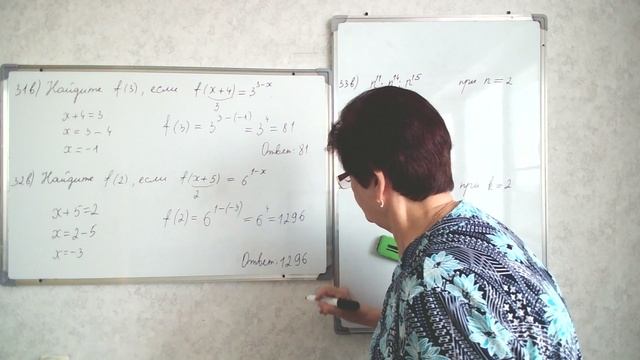 31в) Найдите f(3), если f(x+4) = 3^{3-x}
3
x+4=3
x = 3-4
x = -1
f(3) = 3^{3-(-1)} = 3^4 = 81
Ответ: 81
32в) Найдите f(2), если f(x+5) = 6^{1-x}
2
x+5=2
x=2-5
x=-3
f(2) = 6^{1-(-3)} = 6^4 = 1296
Ответ: 1296
33в) при n = 2
при k = 2